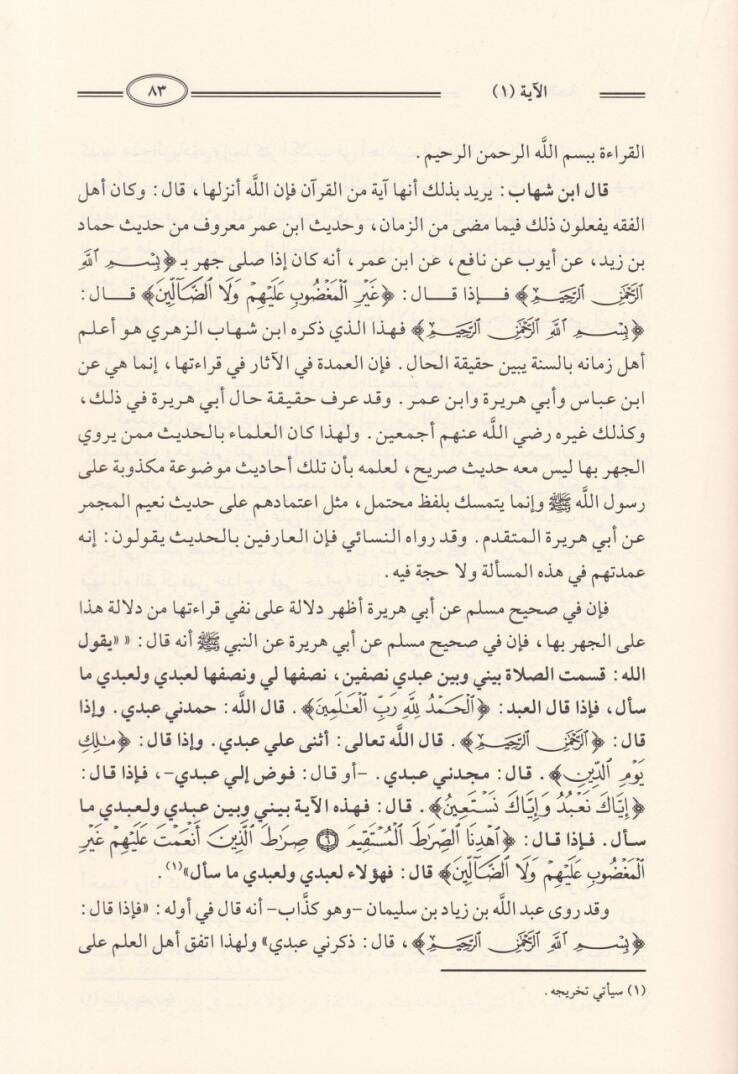 الآية (١) ٨٣
القراءة ببسم اللَّه الرحمن الرحيم.
قال ابن شهاب: يريد بذلك أنها آية من القرآن فإن اللَّه أنزلها، قال: وكان أهل
الفقه يفعلون ذلك فيما مضى من الزمان، وحديث ابن عمر معروف من حديث حماد
بن زيد، عن أيوب عن نافع، عن ابن عمر، أنه كان إذا صلى جهر بـ ﴿بِسْمِ ٱللَّهِ
ٱلرَّحْمَٰنِ ٱلرَّحِيمِ﴾ فإذا قال: ﴿غَيْرِ ٱلْمَغْضُوبِ عَلَيْهِمْ وَلَا ٱلضَّآلِّينَ﴾ قال:
﴿بِسْمِ ٱللَّهِ ٱلرَّحْمَٰنِ ٱلرَّحِيمِ﴾ فهذا الذي ذكره ابن شهاب الزهري هو أعلم
أهل زمانه بالسنة يبين حقيقة الحال. فإن العمدة في الآثار في قراءتها، إنما هي عن
ابن عباس وأبي هريرة وابن عمر. وقد عرف حقيقة حال أبي هريرة في ذلك،
وكذلك غيره رضي اللَّه عنهم أجمعين. ولهذا كان العلماء بالحديث ممن يروي
الجهر بها ليس معه حديث صريح، لعلمه بأن تلك أحاديث موضوعة مكذوبة على
رسول اللَّه ﷺ وإنما يتمسك بلفظ محتمل، مثل اعتمادهم على حديث نعيم المجمر
عن أبي هريرة المتقدم. وقد رواه النسائي فإن العارفين بالحديث يقولون: إنه
عمدتهم في هذه المسألة ولا حجة فيه.
فإن في صحيح مسلم عن أبي هريرة أظهر دلالة على نفي قراءتها من دلالة هذا
على الجهر بها، فإن في صحيح مسلم عن أبي هريرة عن النبي ﷺ أنه قال: «يقول
الله: قسمت الصلاة بيني وبين عبدي نصفين، نصفها لي ونصفها لعبدي ولعبدي ما
سأل، فإذا قال العبد: ﴿ٱلْحَمْدُ لِلَّهِ رَبِّ ٱلْعَٰلَمِينَ﴾. قال اللَّه: حمدني عبدي. وإذا
قال: ﴿ٱلرَّحْمَٰنِ ٱلرَّحِيمِ﴾. قال اللَّه تعالى: أثنى علي عبدي. وإذا قال: ﴿مَٰلِكِ
يَوْمِ ٱلدِّينِ﴾. قال: مجدني عبدي. -أو قال: فوض إلي عبدي-، فإذا قال:
﴿إِيَّاكَ نَعْبُدُ وَإِيَّاكَ نَسْتَعِينُ﴾. قال: فهذه الآية بيني وبين عبدي ولعبدي ما
سأل. فإذا قال: ﴿ٱهْدِنَا ٱلصِّرَٰطَ ٱلْمُسْتَقِيمَ ٦ صِرَٰطَ ٱلَّذِينَ أَنْعَمْتَ عَلَيْهِمْ غَيْرِ
ٱلْمَغْضُوبِ عَلَيْهِمْ وَلَا ٱلضَّآلِّينَ﴾ قال: فهؤلاء لعبدي ولعبدي ما سأل»(١).
وقد روى عبد اللَّه بن زياد بن سليمان -وهو كذَّاب- أنه قال في أوله: «فإذا قال:
﴿بِسْمِ ٱللَّهِ ٱلرَّحْمَٰنِ ٱلرَّحِيمِ﴾، قال: ذكرني عبدي» ولهذا اتفق أهل العلم على
(١) سيأتي تخريجه.